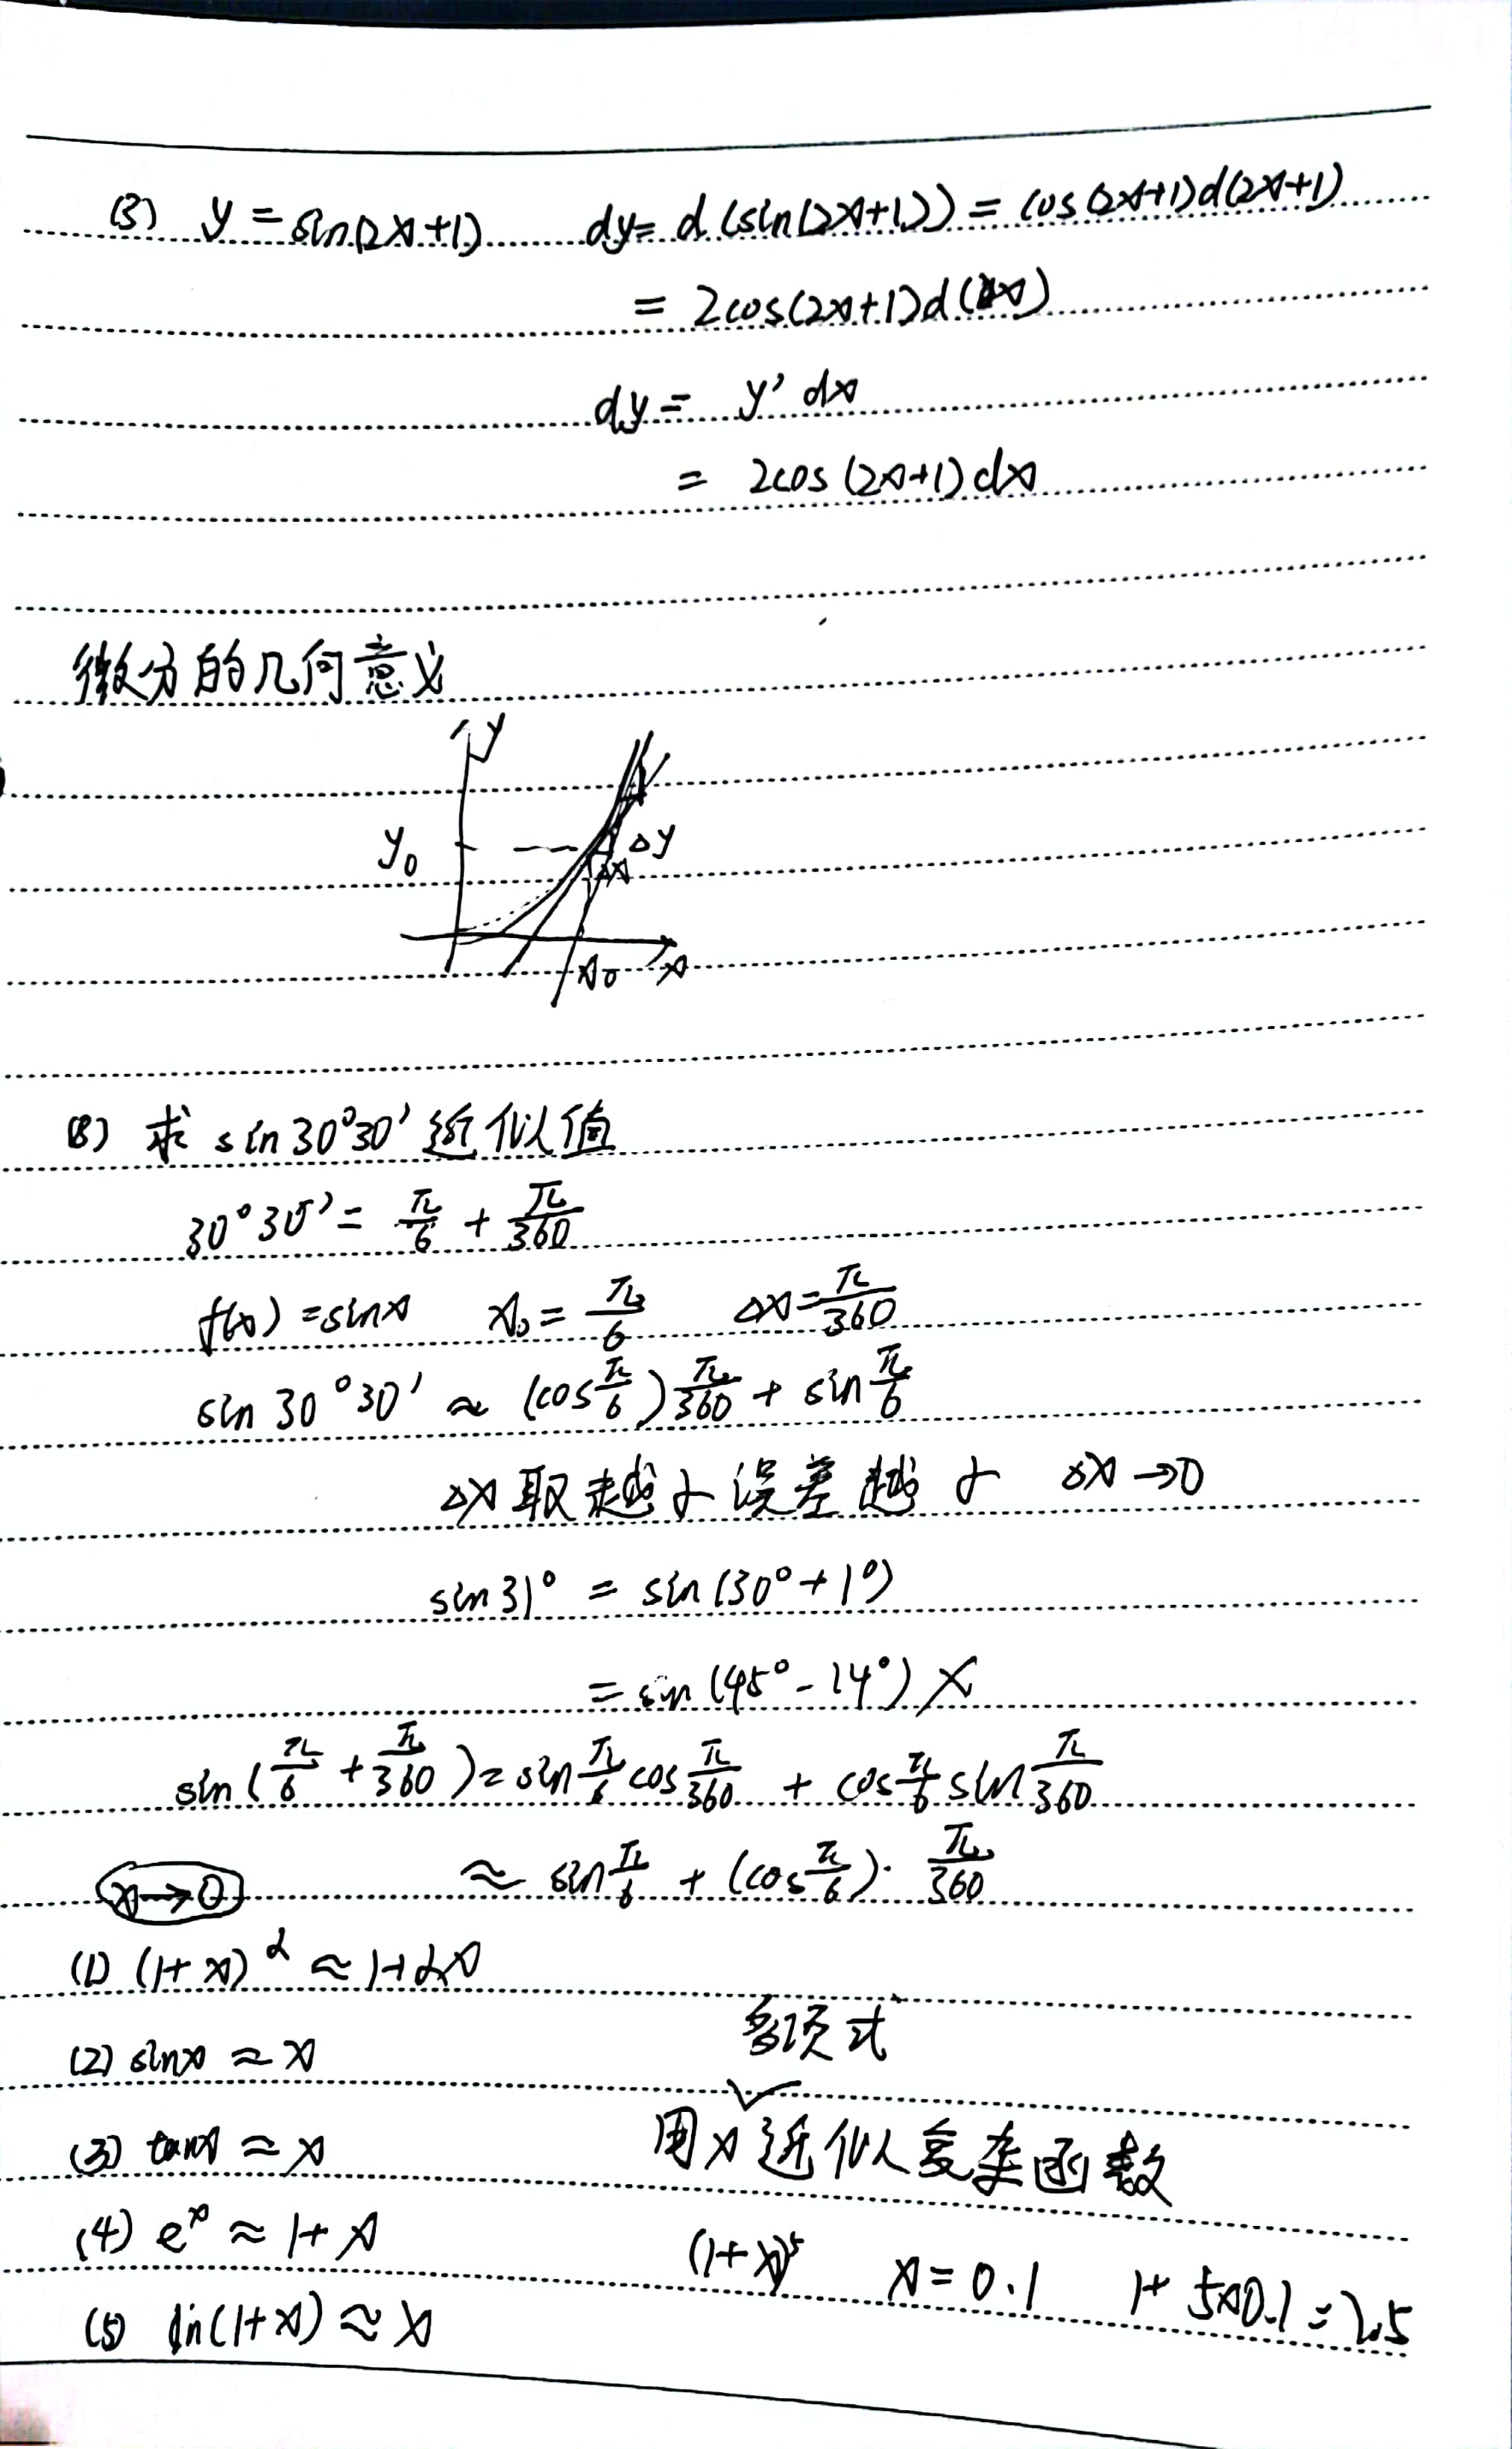 (3) y = sin(2x+1) dy = d(sin(2x+1)) = cos(2x+1)d(2x+1)
= 2cos(2x+1)d(x)
dy = y' dx
= 2cos(2x+1)dx
微分的几何意义
y
y₀ Δy
Δx
x₀ x
(8) 求 sin30°30' 近似值
30°30' = π/6 + π/360
f(x) = sinx x₀ = π/6 Δx = π/360
sin30°30' ≈ (cos π/6) π/360 + sin π/6
Δx取越小误差越小 Δx→0
sin31° = sin(30°+1°)
= sin(45°-14°) ×
sin(π/6 + π/360) = sin π/6 cos π/360 + cos π/6 sin π/360
≈ sin π/6 + (cos π/6)· π/360
x→0
(1) (1+x)^α ≈ 1+αx
(2) sinx ≈ x
多项式
(3) tanx ≈ x
用x近似复杂函数
(4) eˣ ≈ 1+x
(1+x)⁵ x=0.1 1+5×0.1=1.5
(5) ln(1+x) ≈ x